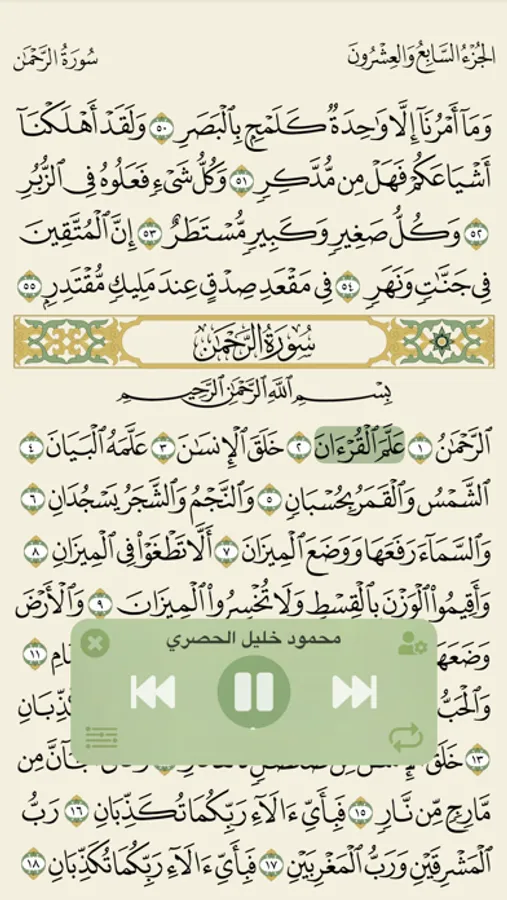 الجُزْءُ السَّابِعُ وَالعِشْرُونَ سُورَةُ الرَّحْمَٰن
وَمَآ أَمْرُنَآ إِلَّا وَٰحِدَةٌ كَلَمْحٍۭ بِٱلْبَصَرِ ٥٠ وَلَقَدْ أَهْلَكْنَآ
أَشْيَاعَكُمْ فَهَلْ مِن مُّدَّكِرٍ ٥١ وَكُلُّ شَىْءٍ فَعَلُوهُ فِى ٱلزُّبُرِ
٥٢ وَكُلُّ صَغِيرٍ وَكَبِيرٍ مُّسْتَطَرٌ ٥٣ إِنَّ ٱلْمُتَّقِينَ
فِى جَنَّٰتٍ وَنَهَرٍ ٥٤ فِى مَقْعَدِ صِدْقٍ عِندَ مَلِيكٍ مُّقْتَدِرٍۭ ٥٥
سُورَةُ الرَّحْمَٰن
بِسْمِ ٱللَّهِ ٱلرَّحْمَٰنِ ٱلرَّحِيمِ
ٱلرَّحْمَٰنُ ١ عَلَّمَ ٱلْقُرْءَانَ ٢ خَلَقَ ٱلْإِنسَٰنَ ٣ عَلَّمَهُ ٱلْبَيَانَ ٤
ٱلشَّمْسُ وَٱلْقَمَرُ بِحُسْبَانٍ ٥ وَٱلنَّجْمُ وَٱلشَّجَرُ يَسْجُدَانِ ٦
وَٱلسَّمَآءَ رَفَعَهَا وَوَضَعَ ٱلْمِيزَانَ ٧ أَلَّا تَطْغَوْا۟ فِى ٱلْمِيزَانِ ٨
وَأَقِيمُوا۟ ٱلْوَزْنَ بِٱلْقِسْطِ وَلَا تُخْسِرُوا۟ ٱلْمِيزَانَ ٩ وَٱلْأَرْضَ
وَضَعَهَا ١١
محمود خليل الحصري
وَٱلْحَبُّ
١٣ خَلَقَ جَآنَّ مِن
مَّارِجٍ مِّن نَّارٍ ١٥ فَبِأَىِّ ءَالَآءِ رَبِّكُمَا تُكَذِّبَانِ ١٦ رَبُّ
ٱلْمَشْرِقَيْنِ وَرَبُّ ٱلْمَغْرِبَيْنِ ١٧ فَبِأَىِّ ءَالَآءِ رَبِّكُمَا تُكَذِّبَانِ ١٨